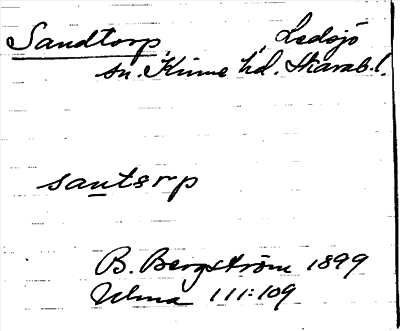 Sandtorp, Ledsjö
sn. Kinne hd. Skarab. l.
santɛrp
B. Bergström 1899
Ulma 111:109